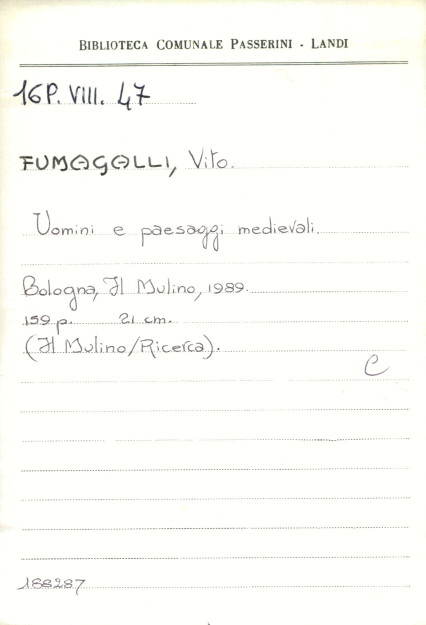 BIBLIOTECA COMUNALE PASSERINI - LANDI
16P. VIII. 47
FUMAGALLI, Vito.
Uomini e paesaggi medievali.
Bologna, Il Mulino, 1989.
159 p. 21 cm.
(Il Mulino/Ricerca).
C
188287